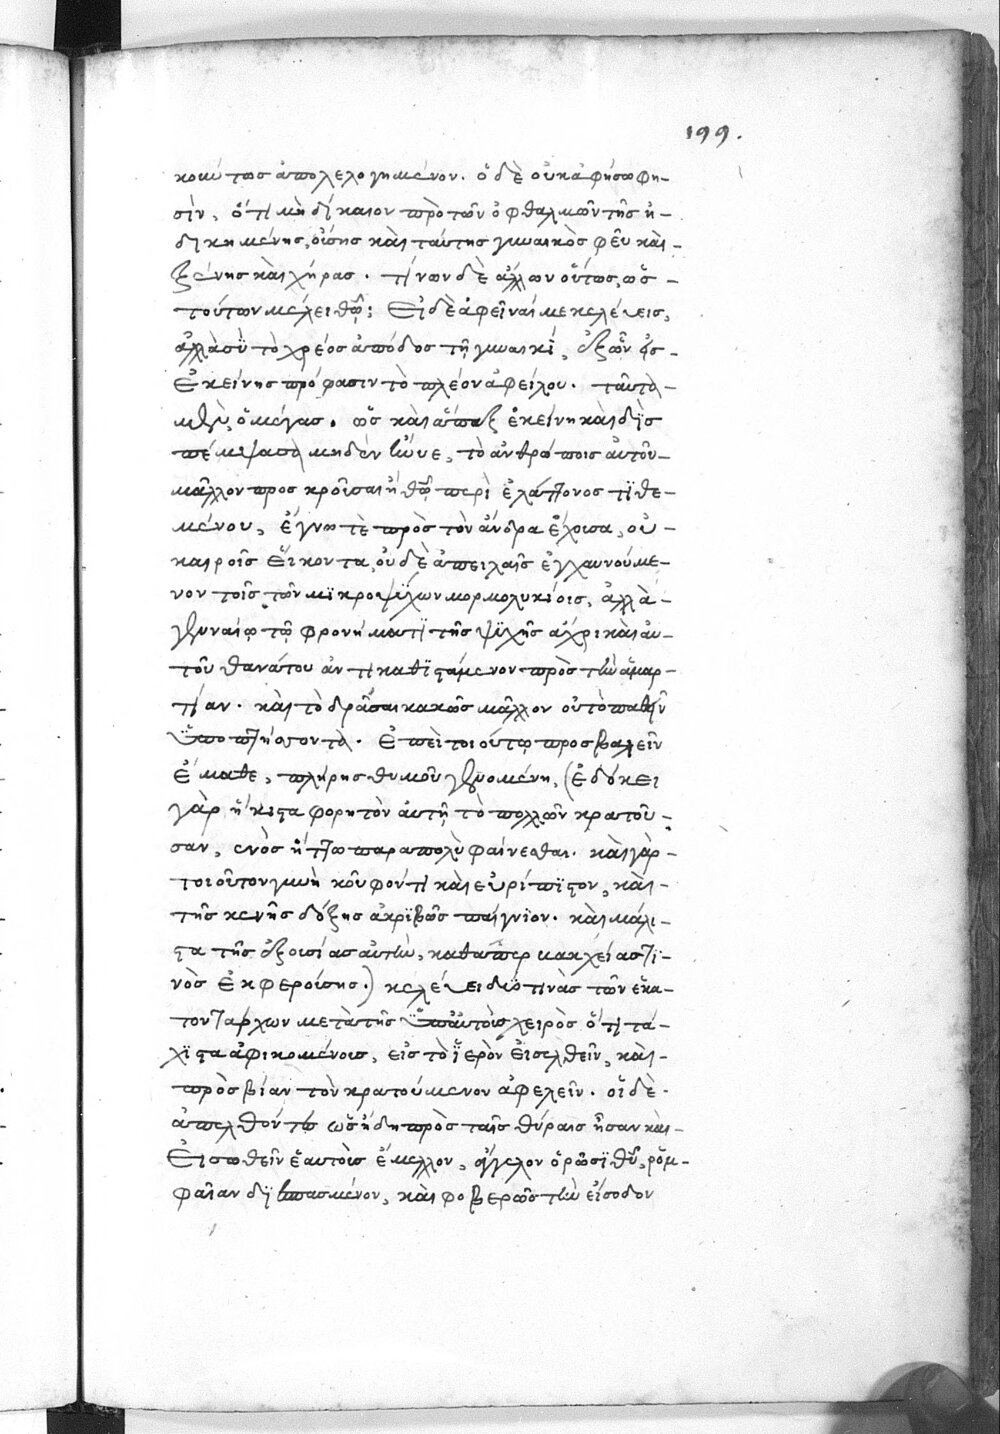 199.
κοινῶς τως ἀπολελογημένον. ὁ δὲ οὐκ ἀφήσω φη-
σὶν, ὅτι μὴ δίκαιον πρὸ τῶν ὀφθαλμῶν τῆς ἠ-
δικημένης, οὔσης καὶ ταύτης γυναικὸς φεῦ καὶ -
ξένης καὶ χήρας. τίνων δὲ ἄλλων οὕτως, ὡς -
τούτων μέλει θῶ; Εἰ δὲ ἀφεῖναί με κελεύεις,
ἀλλὰ σὺ τὸ χρέος ἀπόδος τῆ γυναικί, ἐξ ὧν εἰς -
ἐκείνης πρόφασιν τὸ πλέον ἀφείλου. ταῦτα -
μὲν ὁ μέγας. ὡς καὶ ἅπαξ ἐκείνη καὶ δὶς
πέμψασα μηδὲν ἤνυε, τὸ ἀνθρώποις αὐτοῦ -
μᾶλλον προσκροῦσαι ἢ θῶ περὶ ἐλάττονος τιθε-
μένου, ἔγνω τὲ πρὸς τὸν ἄνδρα ἔχουσα, οὐ -
καιροῖς εἴκοντα, οὐδὲ ἀπειλαῖς ἐγχαυνούμε-
νον τοῖς τῶν μικροψύχων μορμολυκίοις, ἀλλὰ -
γενναίω τῶ φρονήματι τῆς ψυχῆς ἄχρι καὶ αὐ-
τοῦ θανάτου ἀντικαθιστάμενον πρὸς τὴν ἁμαρ-
τίαν. καὶ τὸ δρᾶσαι κακῶς μᾶλλον οὐ τὸ παθεῖν
ὑποπτήσσοντα. Ἐπεὶ τοιούτω προσβαλεῖν
ἔμαθε, πλήρης θυμοῦ γενομένη, (ἐδόκει
γὰρ ἥκιστα φορητὸν αὐτῆ τὸ πολλῶν κρατοῦ-
σαν, ἑνὸς ἥττω παραπολὺ φαίνεσθαι. καὶ γὰρ -
τοιοῦτον γυνὴ κοῦφόν τι καὶ εὐρίπιστον, καὶ -
τῆς κενῆς δόξης ἀκριβῶς παίγνιον. καὶ μάλι-
στα τῆς ἐξουσίας αὐτὴν, καθάπερ βακχείας τι-
νὸς ἐκφερούσης.) κελεύει δύο τινὰς τῶν ἑκα-
τοντάρχων μετὰ τῆς ὑπ' αὐτοὺς χειρὸς ὅτι τά-
χιστα ἀφικομένους, εἰς τὸ ἱερὸν εἰσελθεῖν, καὶ -
πρὸς βίαν τὸν κρατούμενον ἀφελεῖν. οἱ δὲ -
ἀπελθόντες ὡς ἤδη πρὸς ταῖς θύραις ἦσαν καὶ -
εἰσωθεῖν ἑαυτοὺς ἔμελλον, ἄγγελον ὁρῶσι θυ, ῥομ-
φαίαν διεσπασμένον, καὶ φοβερῶς τὴν εἴσοδον